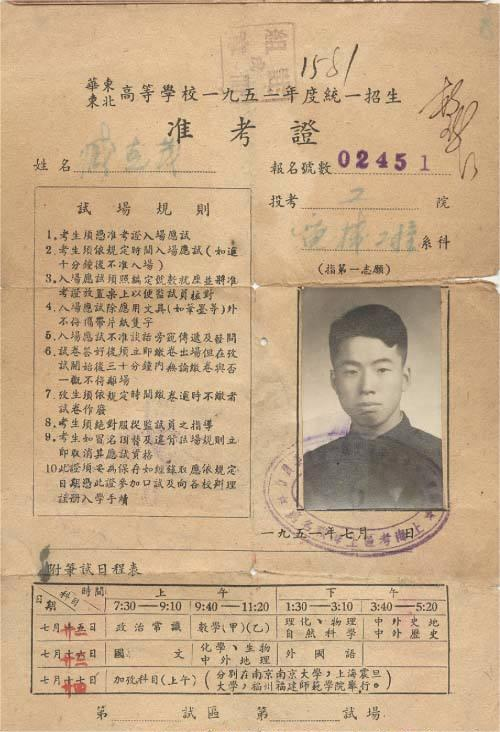 1581
華東
東北 高等學校一九五一年度統一招生
准考證
姓名
報名號數 02451
投考 工 院
系科
(指第一志願)
試場規則
1.考生須憑准考證入場應試
2.考生須依規定時間入場應試(如逾
十分鐘後不准入場)
3.入場應試須照編定號數就座並將准
考證放置桌上以便監試員核對
4.入場應試除應用文具(如筆墨等)外
不得攜帶片紙隻字
5.入場應試不准談話旁窺傳遞及發問
6.試卷答好後須立即繳卷出場但在攷
試開始後三十分鐘內無論繳卷與否
一概不得離場
7.攷生須依規定時間繳卷逾時不繳者
試卷作廢
8.考生須絕對服從監試員之指導
9.考生如冒名頂替及違背試場規則立
即取消其應試資格
10.此證須妥為保存如經錄取應依規定
日期憑此證參加口試及向各校辦理
註冊入學手續
一九五一年七月 日
附筆試日程表
日期 科目 時間 上午 下午
7:30—9:10 9:40—11:20 1:30—3:10 3:40—5:20
七月十五日 政治常識 數學(甲)(乙) 理化、物理 自然科學 中外史地 中外歷史
七月十六日 國文 化學、生物 中外地理 外國語
七月十七日 加攷科目(上午) (分別在南京南京大學,上海震旦
大學,福州福建師範學院舉行。)
第 試區 第 試場